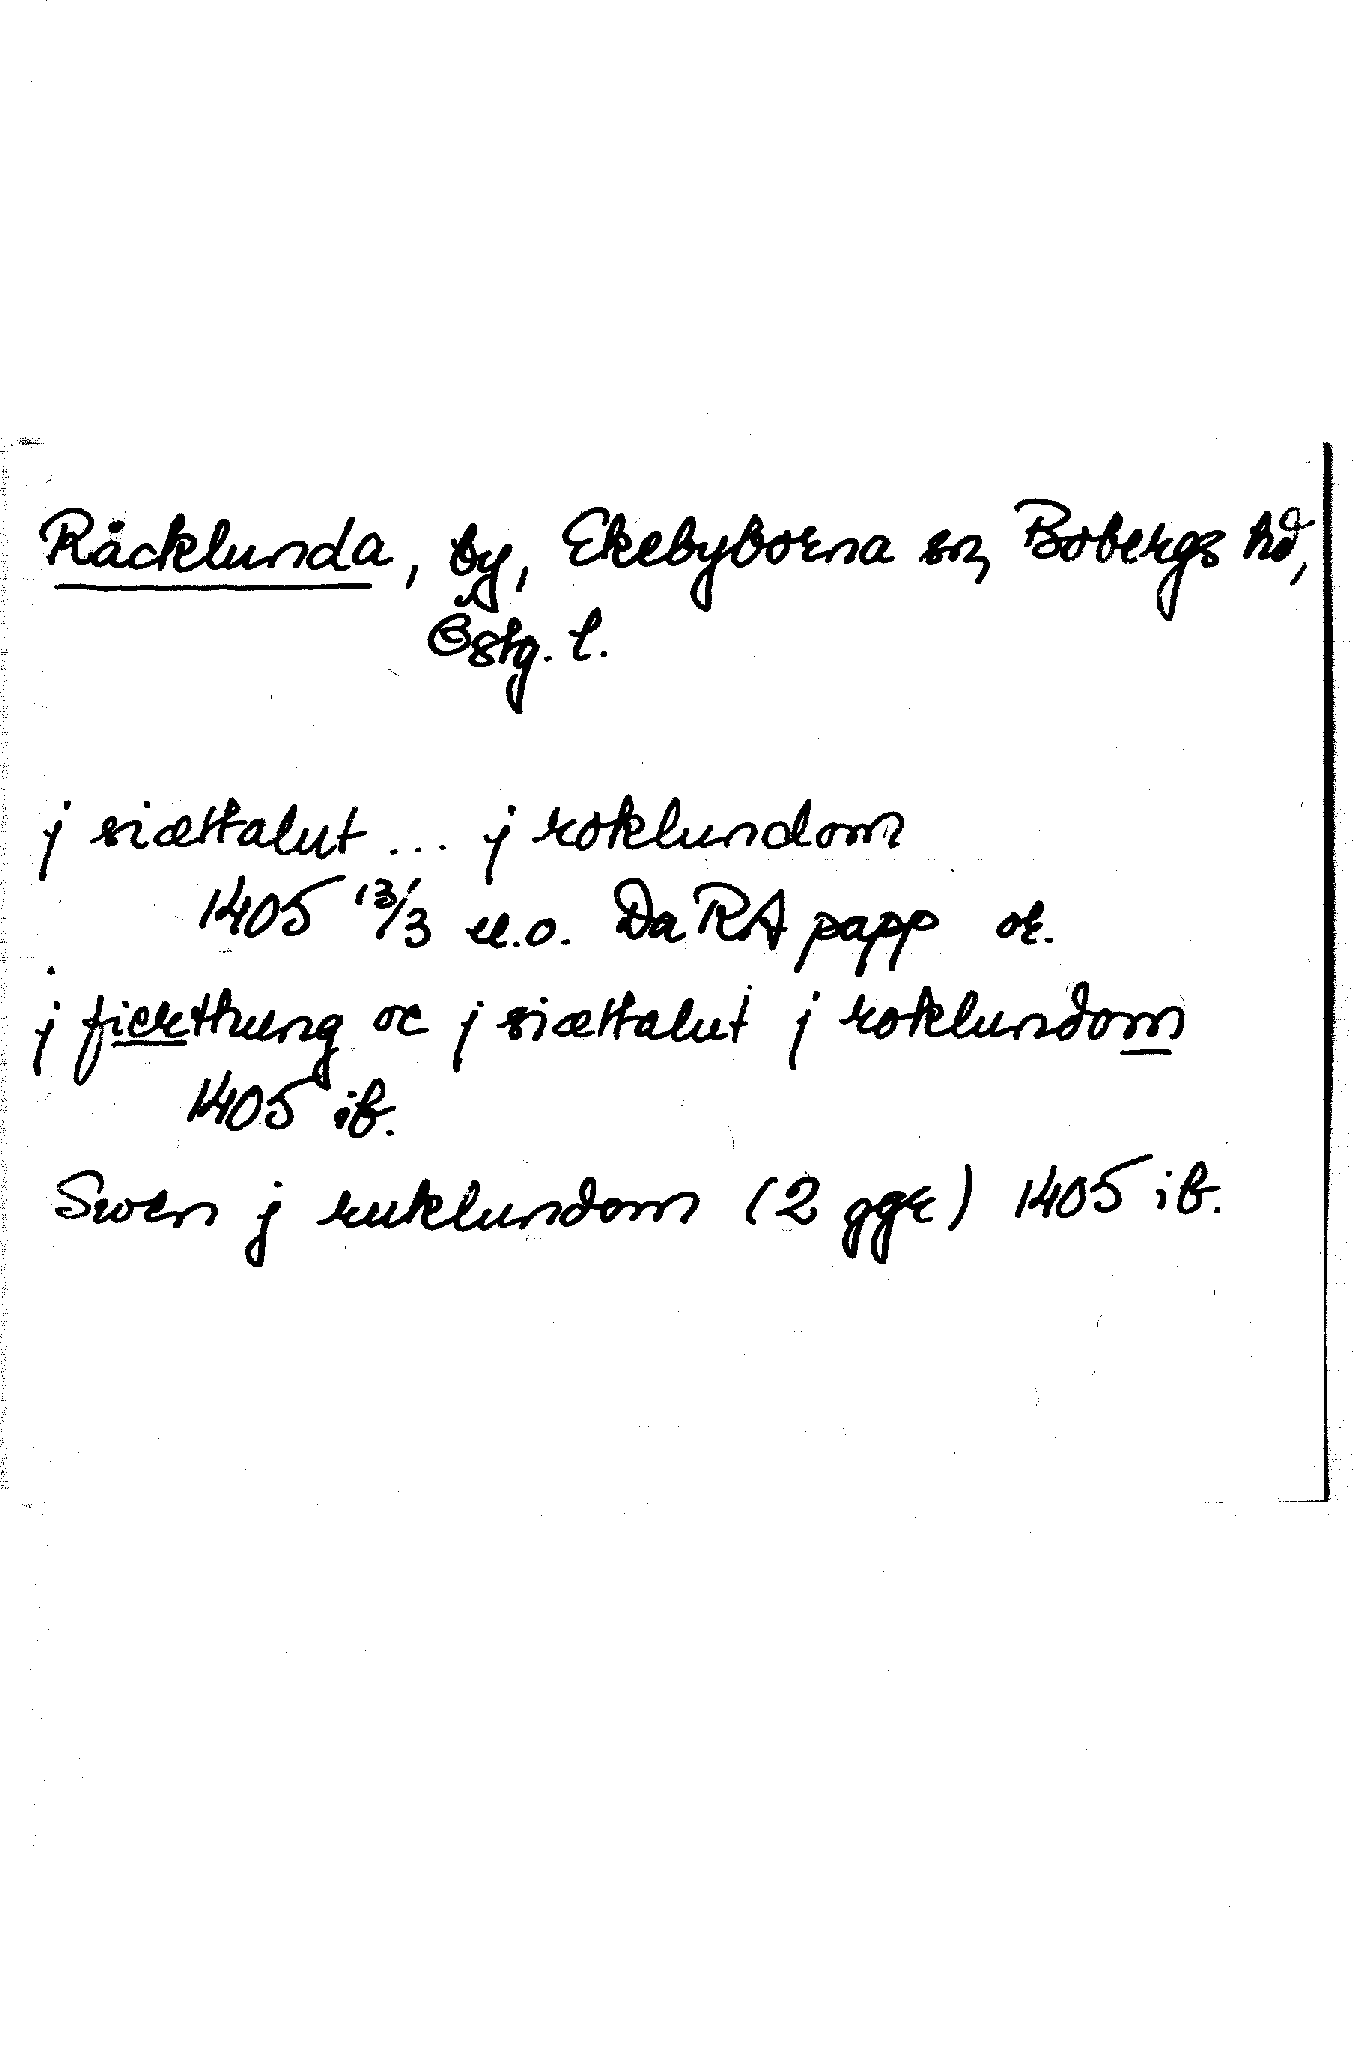 Råcklunda, by, Ekebyborna sn, Bobergs hd,
Östg. l.
j siættalut ... j roklundom
1405 13/3 u.o. Da RA papp or.
j fierthung oc j siættalut j roklundom
1405 ib.
Swen j ruklundom (2 ggr) 1405 ib.